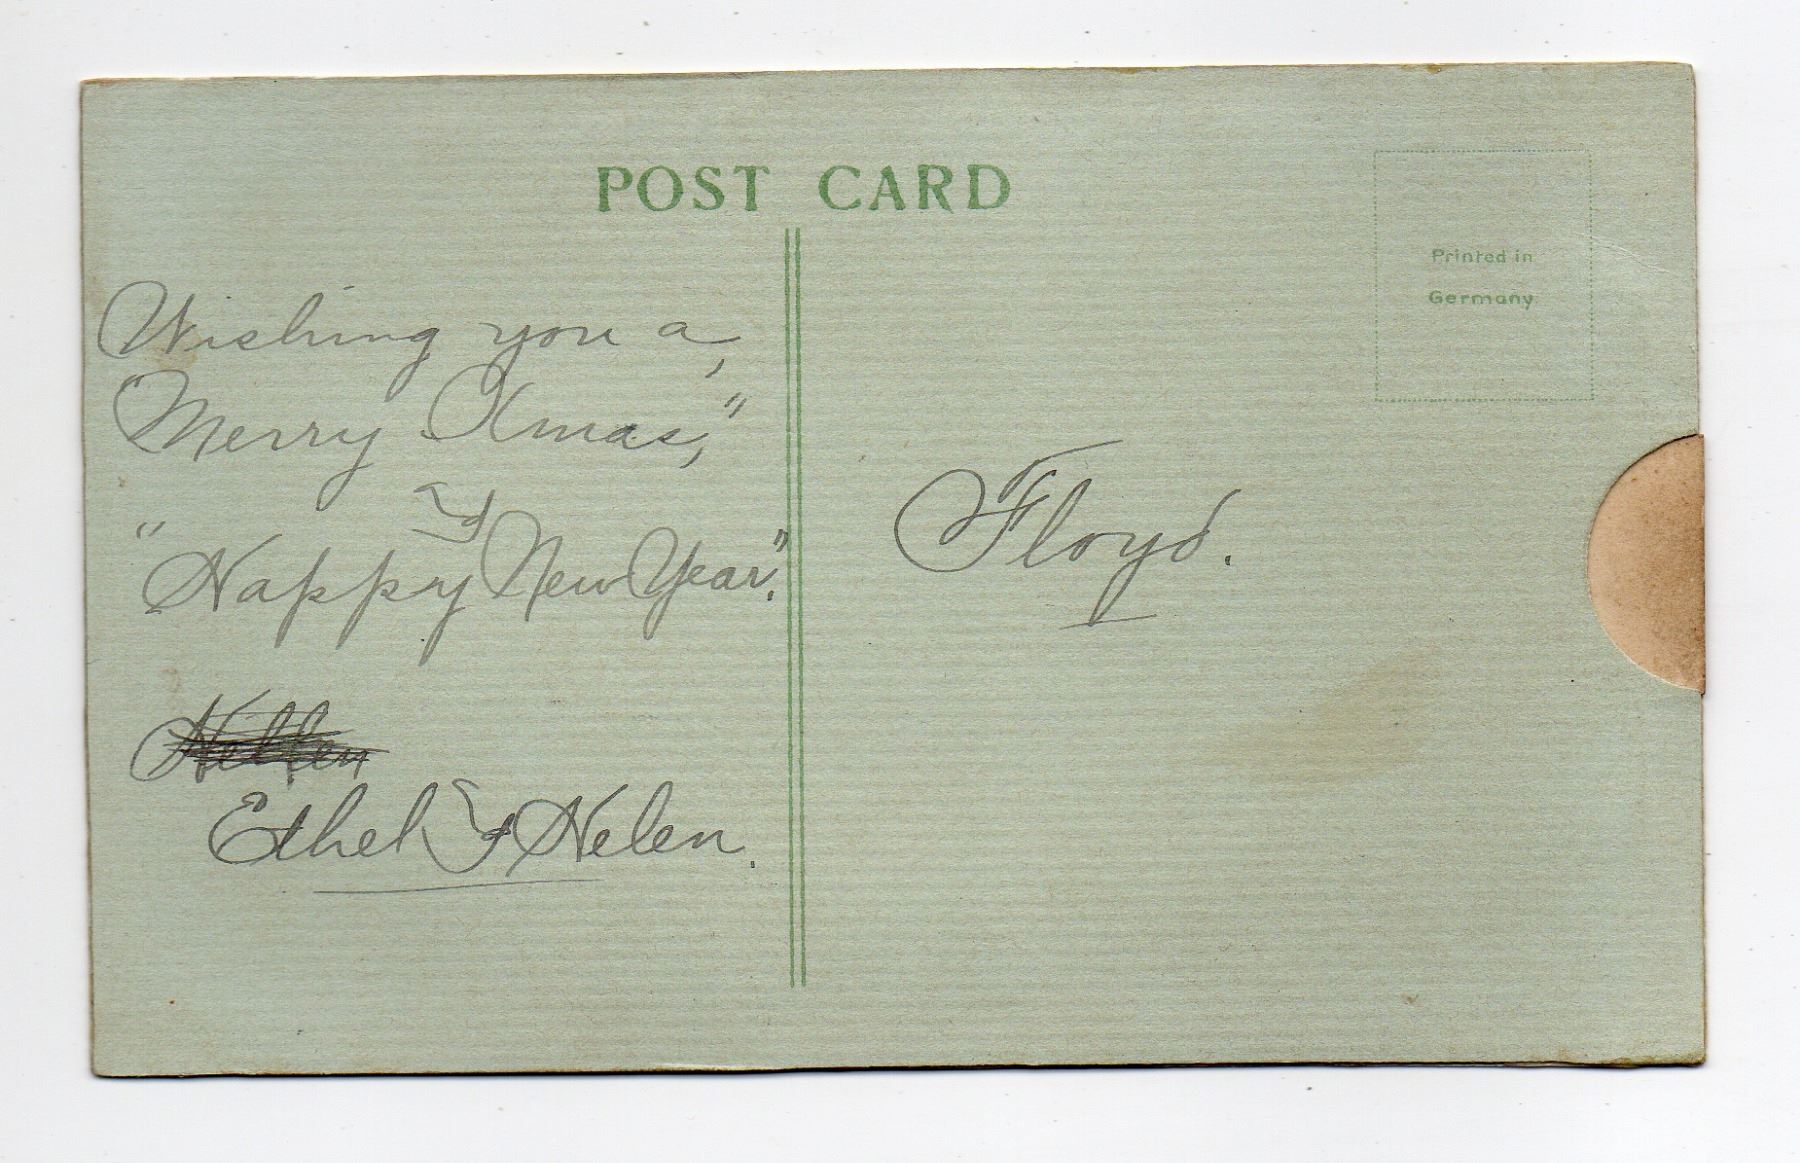 POST CARD
Printed in
Germany
Wishing you a,
"Merry Xmas,"
&
"Happy New Year."
Ethel & Helen.
Floyd.